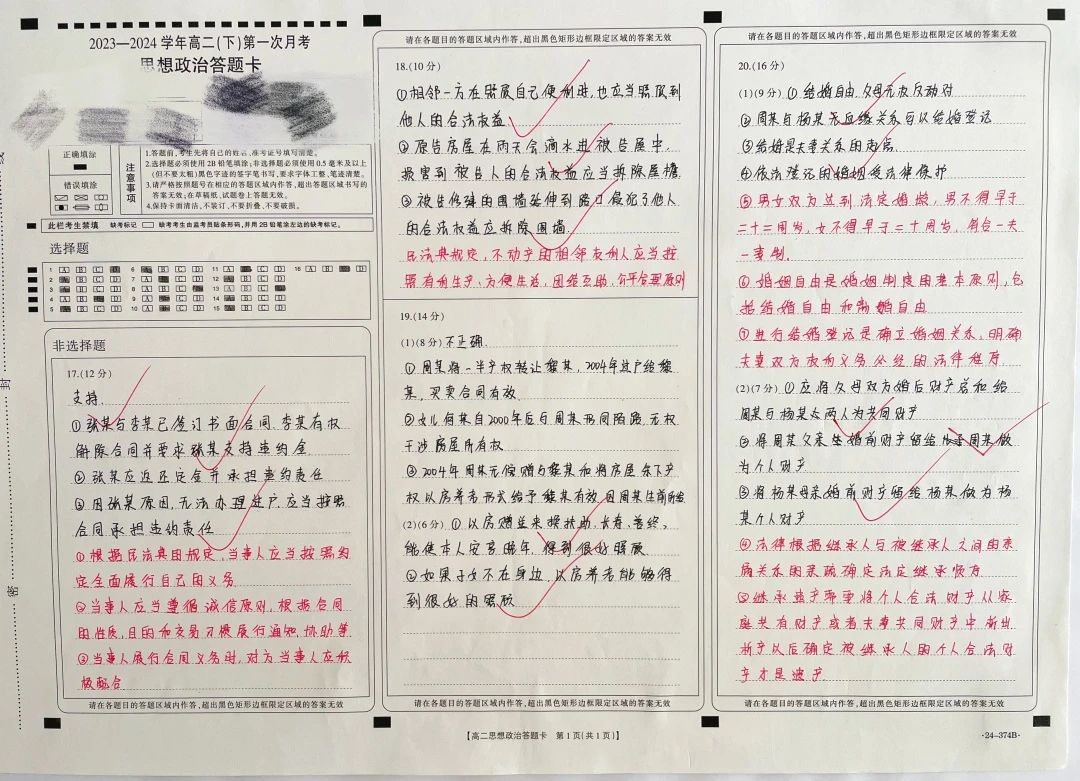 2023—2024 学年高二(下)第一次月考
思想政治答题卡
正确填涂
错误填涂
注意事项
1.答题前,考生先将自己的姓名、准考证号填写清楚。
2.选择题必须使用2B铅笔填涂;非选择题必须使用0.5毫米及以上
(但不要太粗)黑色字迹的签字笔书写,要求字体工整、笔迹清楚。
3.请严格按照题号在相应的答题区域内作答,超出答题区域书写的
答案无效;在草稿纸、试题卷上答题无效。
4.保持卡面清洁,不装订,不要折叠、不要破损。
此栏考生禁填 缺考标记 缺考考生由监考员贴条形码,并用2B铅笔涂左边的缺考标记。
选择题
1 A B C D 6 A B C D 11 A B C D 16 A B C D
2 A B C D 7 A B C D 12 A B C D
3 A B C D 8 A B C D 13 A B C D
4 A B C D 9 A B C D 14 A B C D
5 A B C D 10 A B C D 15 A B C D
非选择题
17.(12分)
支持.
①张某与李某已签订书面合同.李某有权
解除合同并要求张某支持违约金
②张某应返还定金并承担违约责任
③因张某原因,无法办理过户,应当按照
合同承担违约责任
①根据民法典的规定,当事人应当按照约
定全面履行自己的义务
②当事人应当遵循诚信原则,根据合同
的性质,目的和交易习惯履行通知,协助等
③当事人履行合同义务时,对方当事人应积
极配合
请在各题目的答题区域内作答,超出黑色矩形边框限定区域的答案无效
请在各题目的答题区域内作答,超出黑色矩形边框限定区域的答案无效
18.(10分)
①相邻一方在照顾自己便利时,也应当照顾到
他人的合法权益
②原告房屋在雨天会滴水进被告屋中,
损害到被告人的合法权益应当拆除屋檐
③被告修建的围墙延伸到路口侵犯了他人
的合法权益应拆除围墙.
民法典规定,不动产的相邻权利人应当按
照有利生产、方便生活,团结互助、公平合理原则
19.(14分)
(1)(8分)不正确.
①周某将一半产权转让黎某,2004年过户给黎
某,买卖合同有效.
②女儿何某自2000年后与周某形同陌路,无权
干涉房屋所有权
③2004年周某无偿赠与黎某和将房屋余下产
权以房养老形式给予黎某有效因周某生前
(2)(6分)①以房赠益来换扶助、长寿、善终,
能使本人安享晚年,得到很好照顾.
②如果子女不在身边,以房养老能够得
到很好的照顾
请在各题目的答题区域内作答,超出黑色矩形边框限定区域的答案无效
请在各题目的答题区域内作答,超出黑色矩形边框限定区域的答案无效
20.(16分)
(1)(9分)①结婚自由.父母无权反动对
②周某与杨某无血缘关系可以结婚登记
③结婚是夫妻关系的起点.
④依法登记的婚姻受法律保护
⑤男女双方达到法定婚龄,男不得早于
二十二周岁,女不得早于二十周岁,符合一夫
一妻制.
⑥婚姻自由是婚姻制度的基本原则,包
括结婚自由和离婚自由
⑦进行结婚登记是确立婚姻关系,明确
夫妻双方权利义务必经的法律程序.
(2)(7分)①应将父母双方婚后财产总和给
周某与杨某夫两人为共同财产
②将周某父亲生婚前财产留给周某做
为个人财产
③将杨某母亲婚前财产留给杨某做为杨
某个人财产
④法律根据继承人与被继承人之间的亲
属关系的亲疏确定法定继承顺序
⑤继承遗产需要将个人合法财产从家
庭共有财产或者夫妻共同财产中析出
析产以后确定被继承人的个人合法财
产才是遗产
请在各题目的答题区域内作答,超出黑色矩形边框限定区域的答案无效
【高二思想政治答题卡 第1页(共1页)】
·24-374B·
封
密